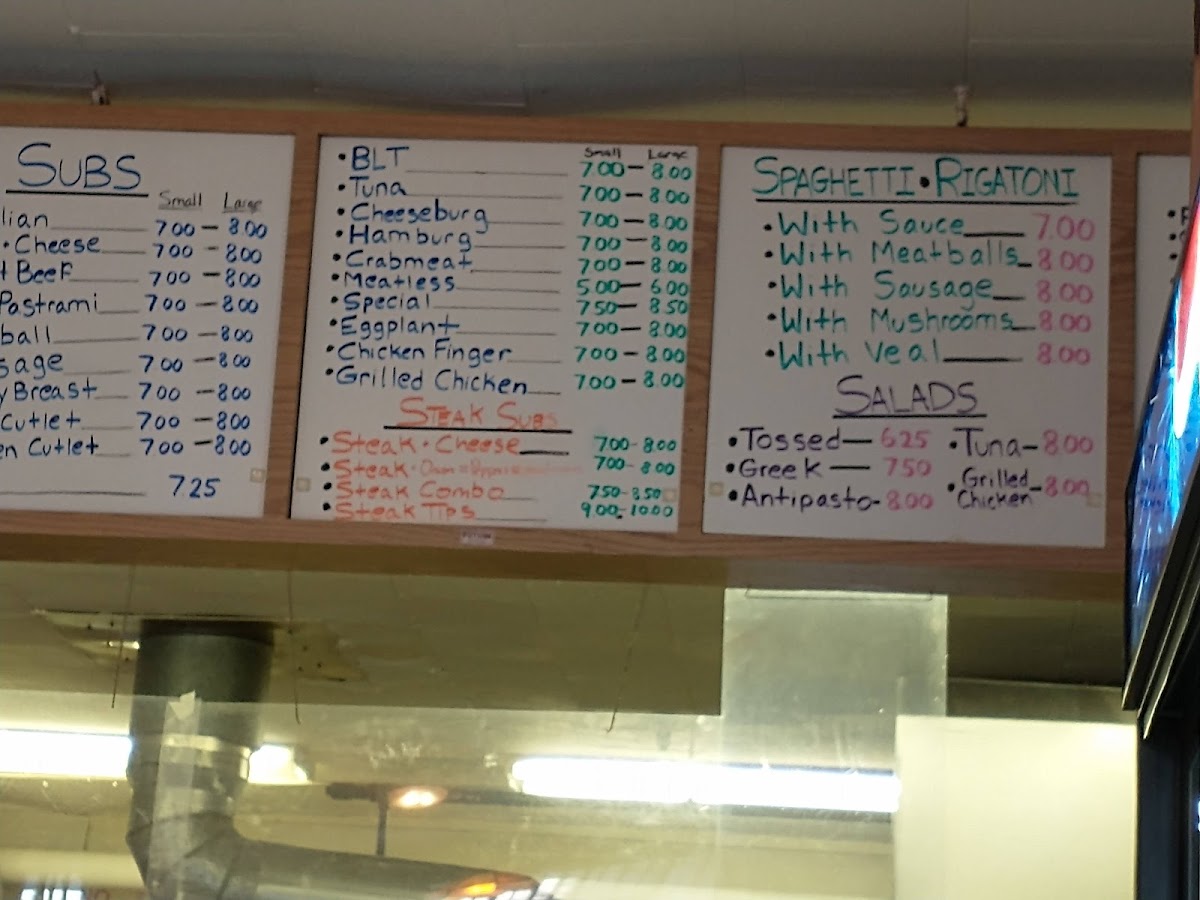 SUBS
Small Large
lian 7.00 – 8.00
• Cheese 7.00 – 8.00
t Beef 7.00 – 8.00
Pastrami 7.00 – 8.00
ball 7.00 – 8.00
sage 7.00 – 8.00
y Breast 7.00 – 8.00
Cutlet 7.00 – 8.00
en Cutlet 7.00 – 8.00
7.25
Small Large
• BLT 7.00 – 8.00
• Tuna 7.00 – 8.00
• Cheeseburg 7.00 – 8.00
• Hamburg 7.00 – 8.00
• Crabmeat 7.00 – 8.00
• Meatless 5.00 – 6.00
• Special 7.50 – 8.50
• Eggplant 7.00 – 8.00
• Chicken Finger 7.00 – 8.00
• Grilled Chicken 7.00 – 8.00
STEAK SUBS
• Steak • Cheese 7.00 - 8.00
• Steak • 7.00 - 8.00
• Steak Combo 7.50 - 8.50
• Steak Tips 9.00 - 10.00
SPAGHETTI • RIGATONI
• With Sauce 7.00
• With Meatballs 8.00
• With Sausage 8.00
• With Mushrooms 8.00
• With Veal 8.00
SALADS
• Tossed — 6.25
• Greek — 7.50
• Antipasto - 8.00
• Tuna - 8.00
• Grilled
Chicken - 8.00